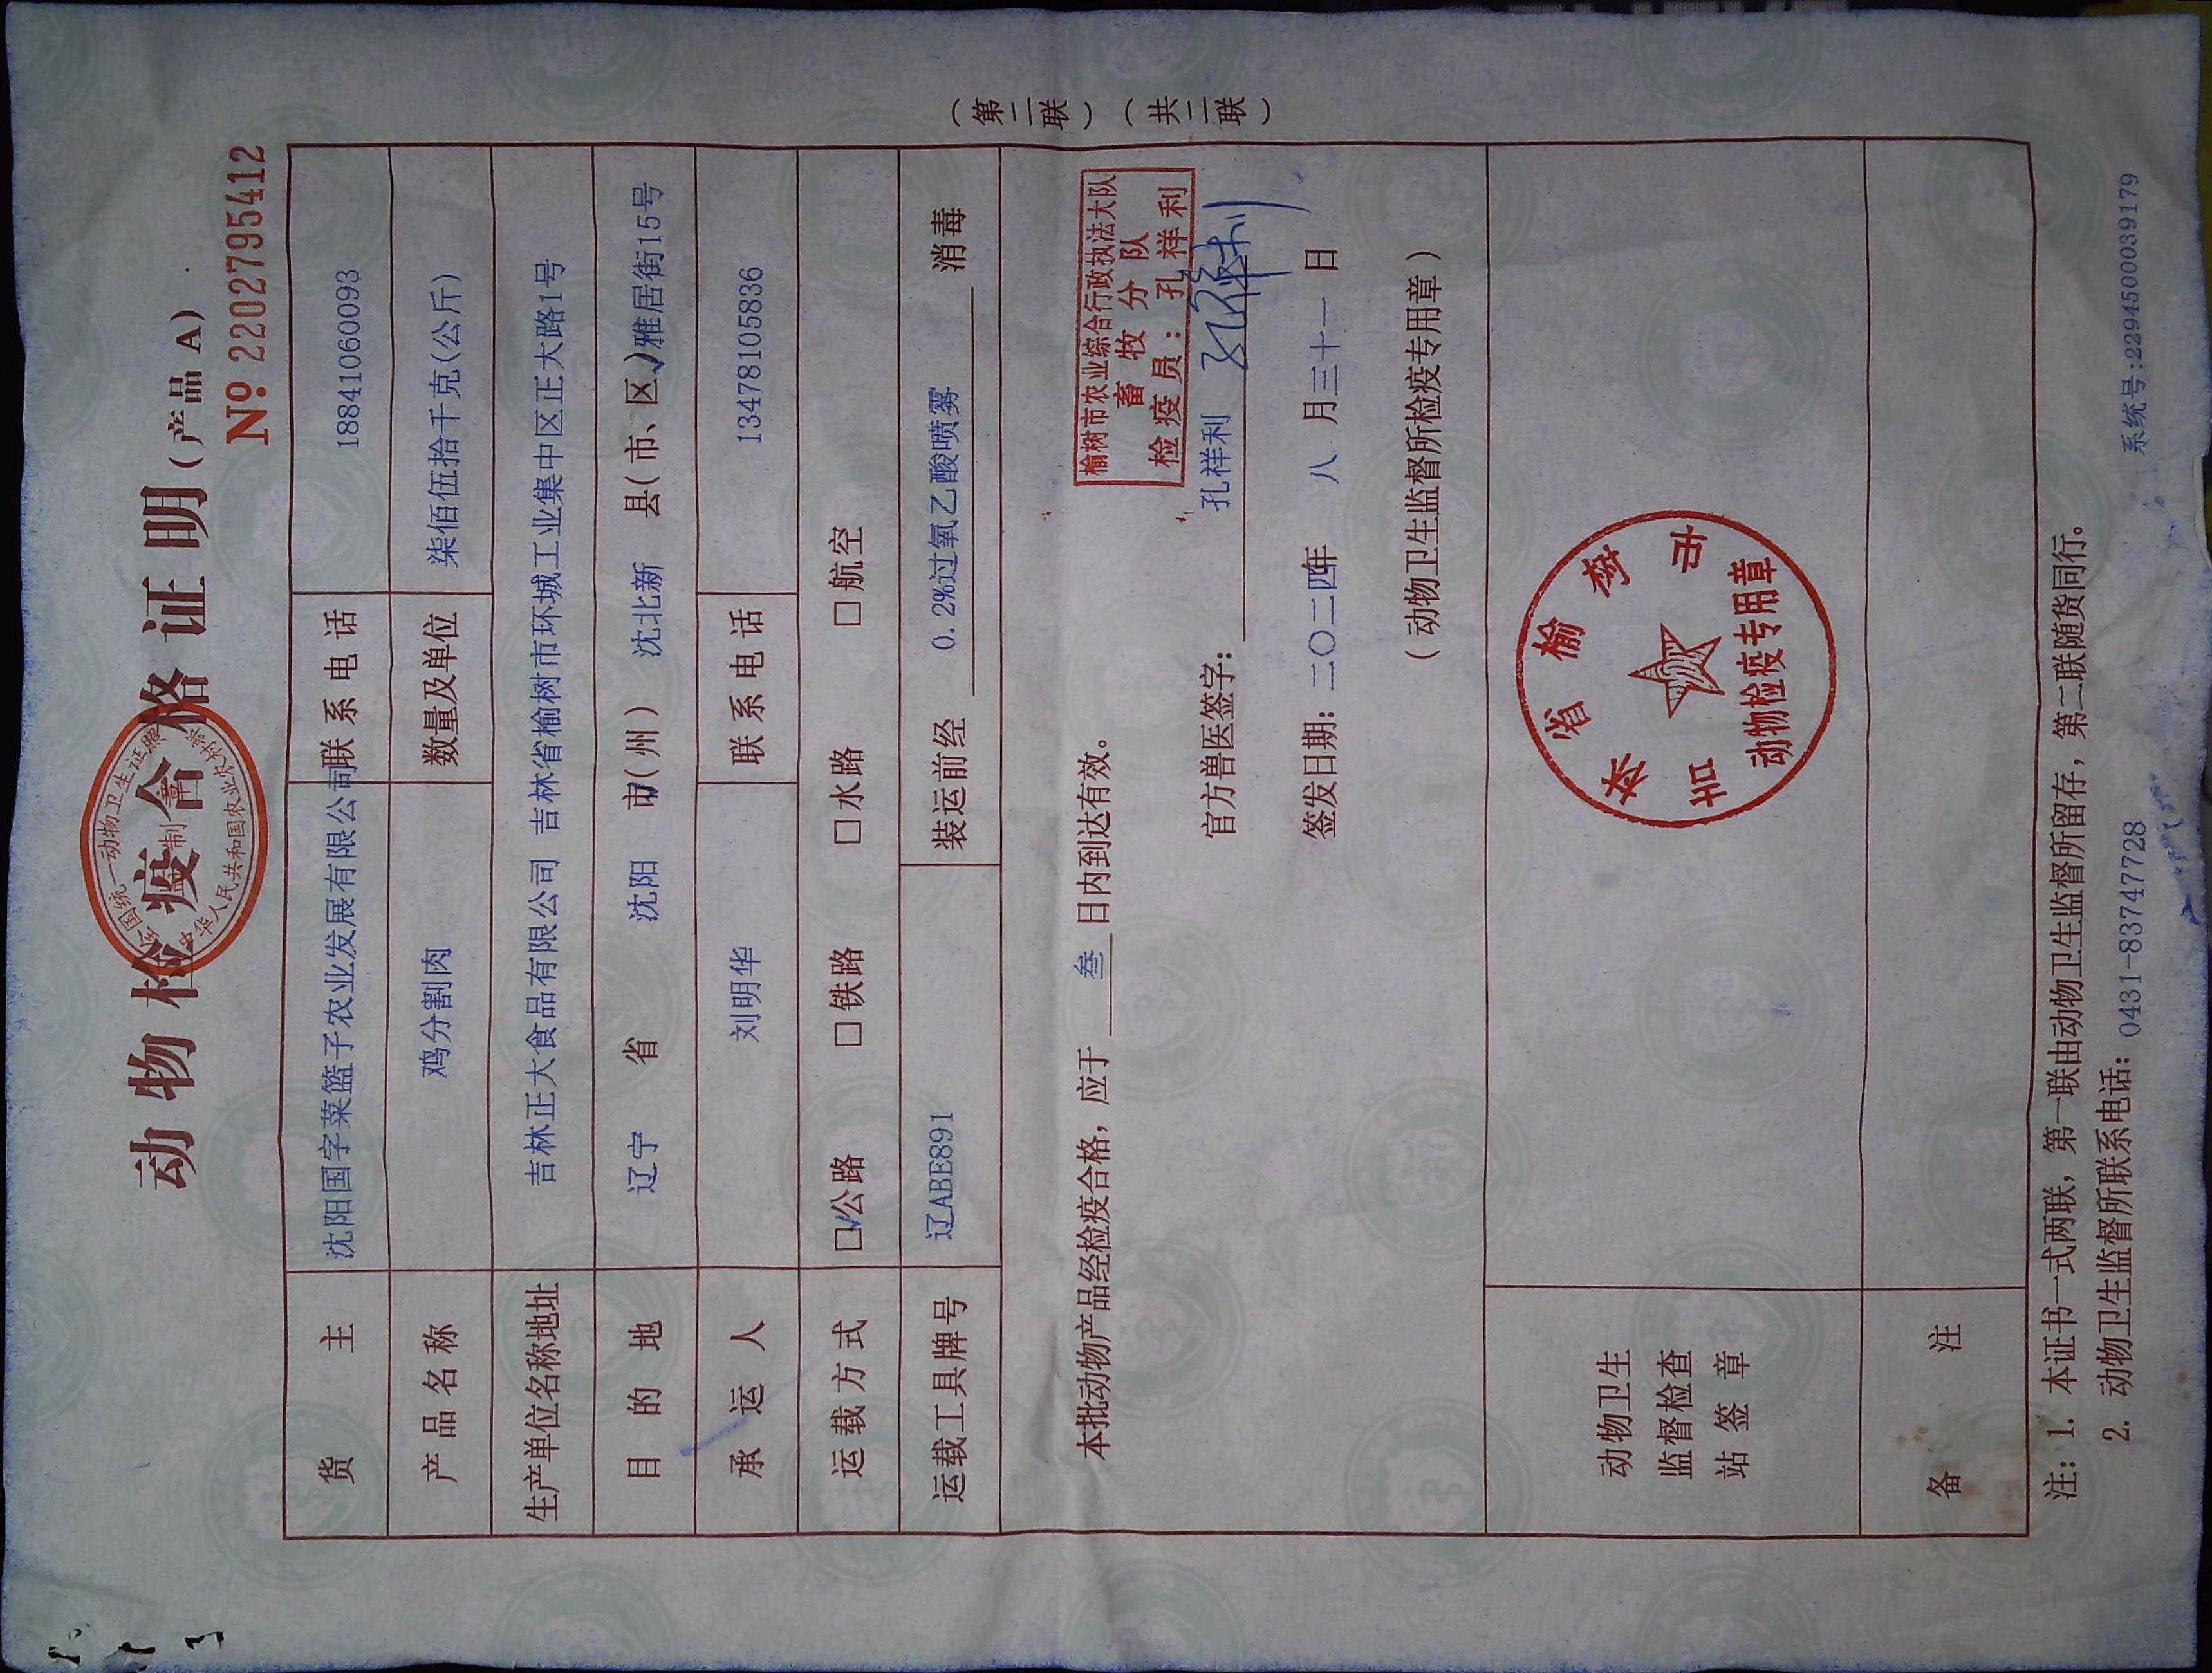 动物检疫合格证明(产品 A)
全国统一动物卫生证照
专用章
制
中华人民共和国农业农村部
№: 2202795412
货 主 沈阳国字菜篮子农业发展有限公司 联系电话 18841060093
产品名称 鸡分割肉 数量及单位 柒佰伍拾千克(公斤)
生产单位名称地址 吉林正大食品有限公司 吉林省榆树市环城工业集中区正大路1号
目的地 辽宁 省 沈阳 市(州) 沈北新 县(市、区) 雅居街15号
承运人 刘明华 联系电话 13478105836
运载方式 ☑公路 □铁路 □水路 □航空
运载工具牌号 辽ABE891 装运前经 0.2%过氧乙酸喷雾 消毒
本批动物产品经检疫合格,应于 叁 日内到达有效。
榆树市农业综合行政执法大队
畜牧分队
检疫员:孔祥利
官方兽医签字: 孔祥利 孔祥利
签发日期: 二〇二四年 八 月三十一 日
(动物卫生监督所检疫专用章)
动物卫生
监督检查
站签章
吉林省榆树市
动物检疫专用章
备 注
(第二联)
(共二联)
注: 1. 本证书一式两联,第一联由动物卫生监督所留存,第二联随货同行。
2. 动物卫生监督所联系电话: 0431-83747728
系统号:229450039179